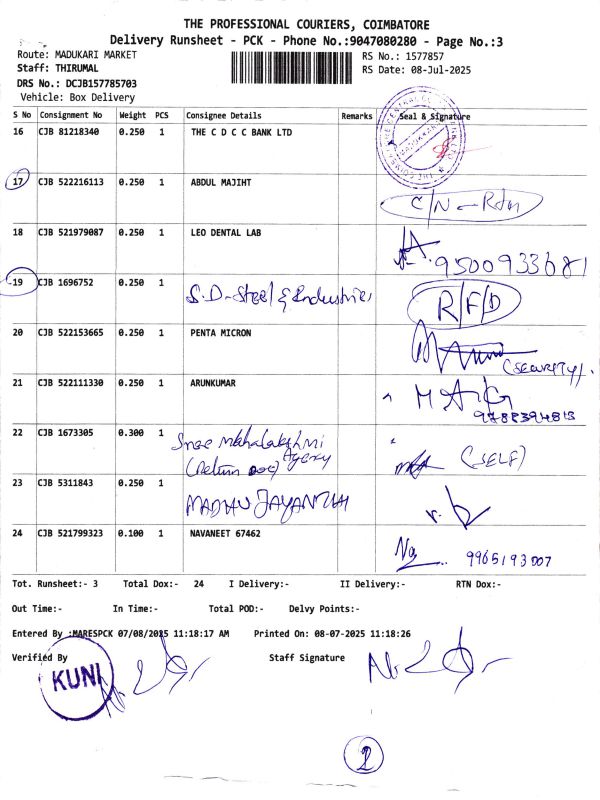 THE PROFESSIONAL COURIERS, COIMBATORE
Delivery Runsheet - PCK - Phone No.:9047080280 - Page No.:3
Route: MADUKARI MARKET RS No.: 1577857
Staff: THIRUMAL RS Date: 08-Jul-2025
DRS No.: DCJB157785703
Vehicle: Box Delivery
S No Consignment No Weight PCS Consignee Details Remarks Seal & Signature
16 CJB 81218340 0.250 1 THE C D C C BANK LTD
17 CJB 522216113 0.250 1 ABDUL MAJIHT C/N - Rtn
18 CJB 521979087 0.250 1 LEO DENTAL LAB 9500933681
19 CJB 1696752 0.250 1 S.D-Steel & Industries R/F/D
20 CJB 522153665 0.250 1 PENTA MICRON (SECURITY)
21 CJB 522111330 0.250 1 ARUNKUMAR
22 CJB 1673305 0.300 1 Sree Mahalakshmi Agency
(Return Doc) (SELF)
23 CJB 5311843 0.250 1 MADHU JAYANTHI
24 CJB 521799323 0.100 1 NAVANEET 67462 9965193007
Tot. Runsheet:- 3 Total Dox:- 24 I Delivery:- II Delivery:- RTN Dox:-
Out Time:- In Time:- Total POD:- Delvy Points:-
Entered By :MARESPCK 07/08/2025 11:18:17 AM Printed On: 08-07-2025 11:18:26
Verified By Staff Signature
KUNI
2